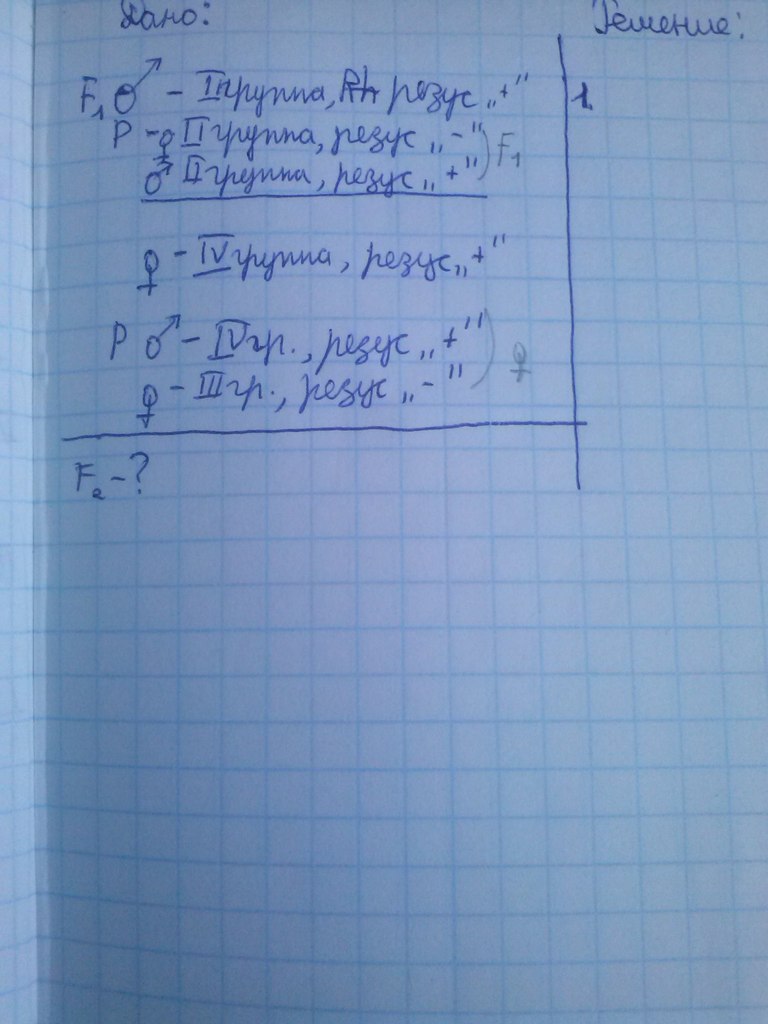 Дано:
Решение:
F₁ ♂ – I группа, Rh резус „+"
1.
P – ♀ II группа, резус „–"
F₁
♂ II группа, резус „+"
♀ – IV группа, резус „+"
P ♂ – IV гр., резус „+"
♀
♀ – III гр., резус „–"
F₂ – ?